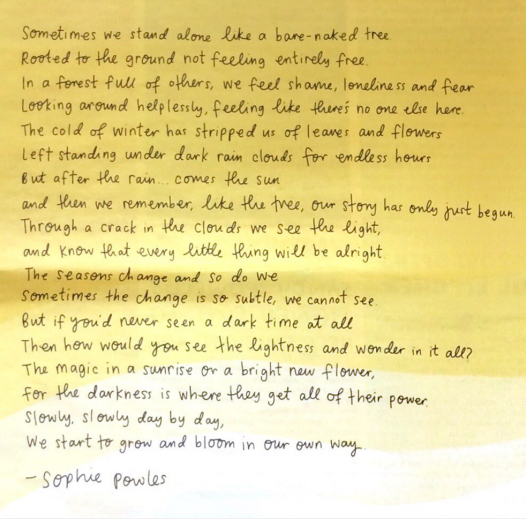 Sometimes we stand alone like a bare-naked tree
Rooted to the ground not feeling entirely free.
In a forest full of others, we feel shame, loneliness and fear
Looking around helplessly, feeling like there's no one else here.
The cold of winter has stripped us of leaves and flowers
Left standing under dark rain clouds for endless hours
But after the rain... comes the sun
and then we remember, like the tree, our story has only just begun.
Through a crack in the clouds we see the light,
and know that every little thing will be alright.
The seasons change and so do we
Sometimes the change is so subtle, we cannot see.
But if you'd never seen a dark time at all
Then how would you see the lightness and wonder in it all?
The magic in a sunrise or a bright new flower,
for the darkness is where they get all of their power.
Slowly, slowly day by day,
We start to grow and bloom in our own way.
- Sophie Powles